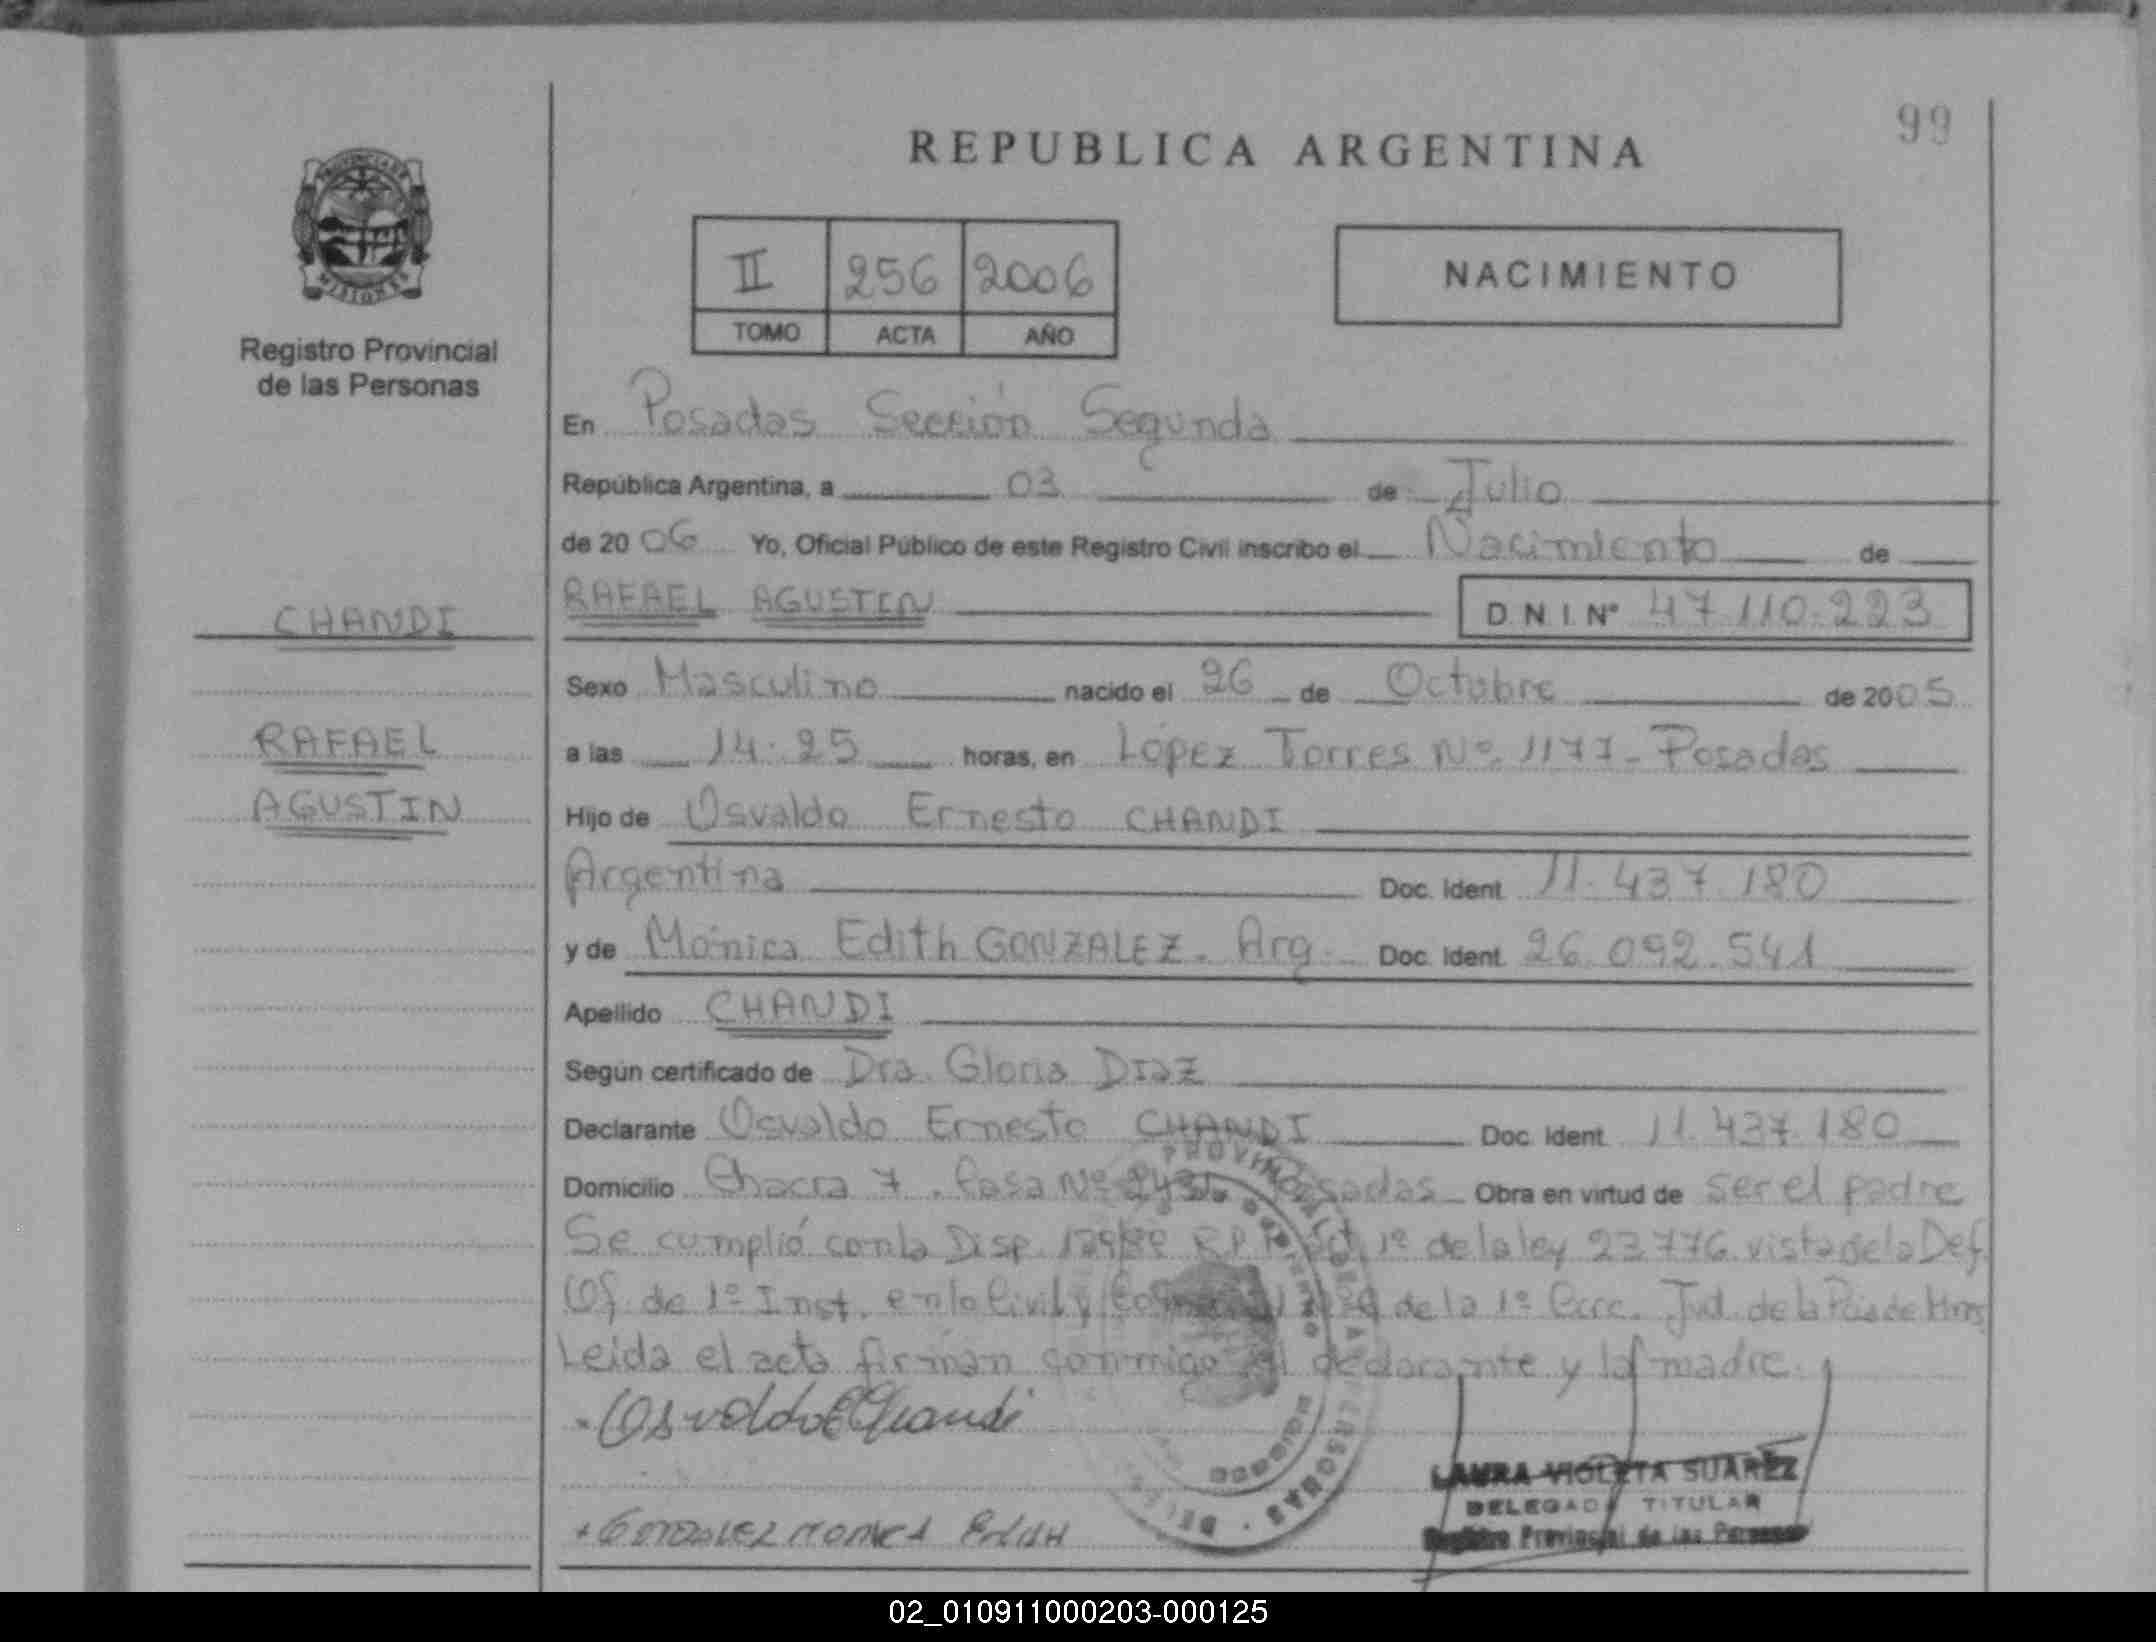 99
REPUBLICA ARGENTINA
PROVINCIA DE
MISIONES
Registro Provincial
de las Personas
II 256 2006
TOMO ACTA AÑO
NACIMIENTO
En Posadas Sección Segunda
República Argentina, a 03 de Julio
de 2006 Yo, Oficial Público de este Registro Civil inscribo el Nacimiento de
CHANDI
RAFAEL AGUSTIN D.N.I.Nº 47.110.223
Sexo Masculino nacido el 26 de Octubre de 2005
RAFAEL
a las 14:25 horas, en López Torres Nº 1177 - Posadas
AGUSTIN
Hijo de Osvaldo Ernesto CHANDI
Argentina Doc. Ident. 11.437.180
y de Mónica Edith GONZALEZ. Arg. Doc. Ident. 26.092.541
Apellido CHANDI
Según certificado de Dra. Gloria DIAZ
Declarante Osvaldo Ernesto CHANDI Doc. Ident. 11.437.180
Domicilio Chacra 7. Casa Nº Posadas Obra en virtud de ser el padre
Se cumplió con la Disp. 1º de la ley 23.776 vista de la Def.
Of. de 1º Inst. en lo Civil y de la 1º Circ. Jud. de la Pcia de Mnes
Leida el acta firman conmigo el declarante y la madre.
Osvaldo E Chandi
LAURA VIOLETA SUAREZ
DELEGADA TITULAR
Registro Provincial de las Personas
+ GONZALEZ MONICA Edith
02_010911000203-000125